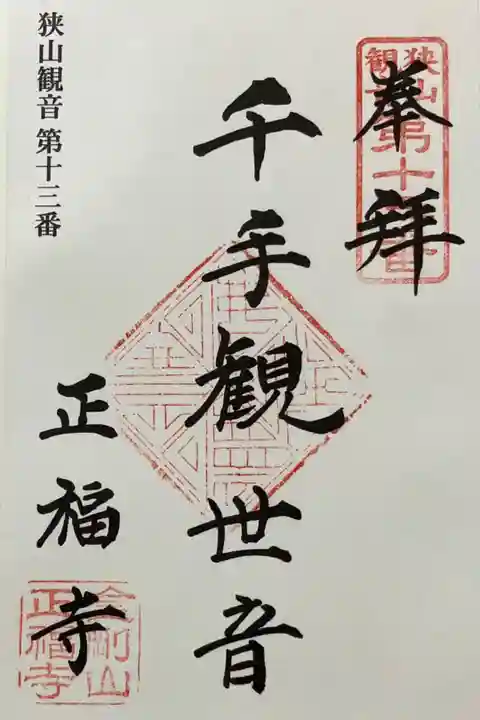 奉拝
狭山観音第十三番
千手観世音
正福寺
金剛山
正福寺
狭山観音 第十三番